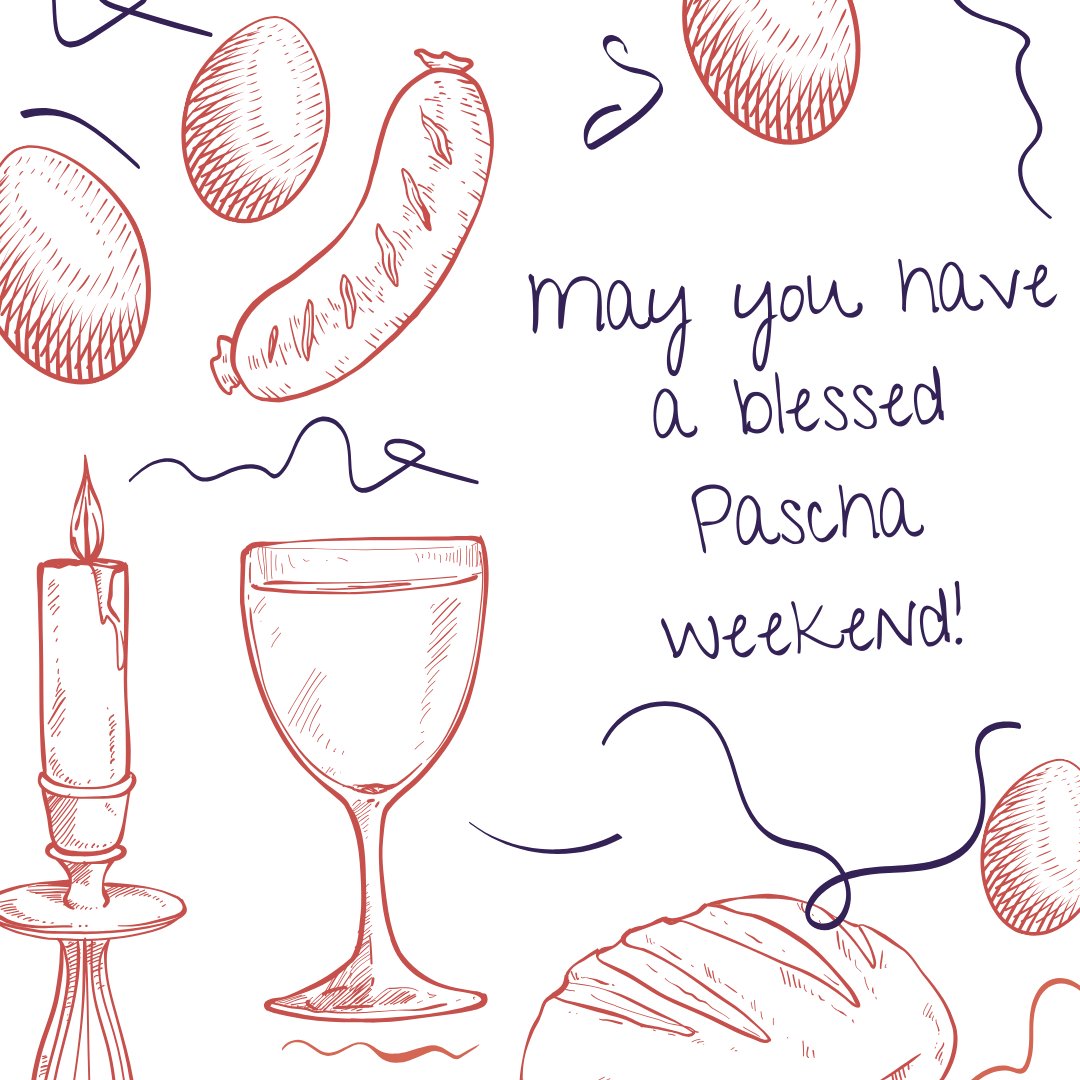 may you have
a blessed
Pascha
weekend!